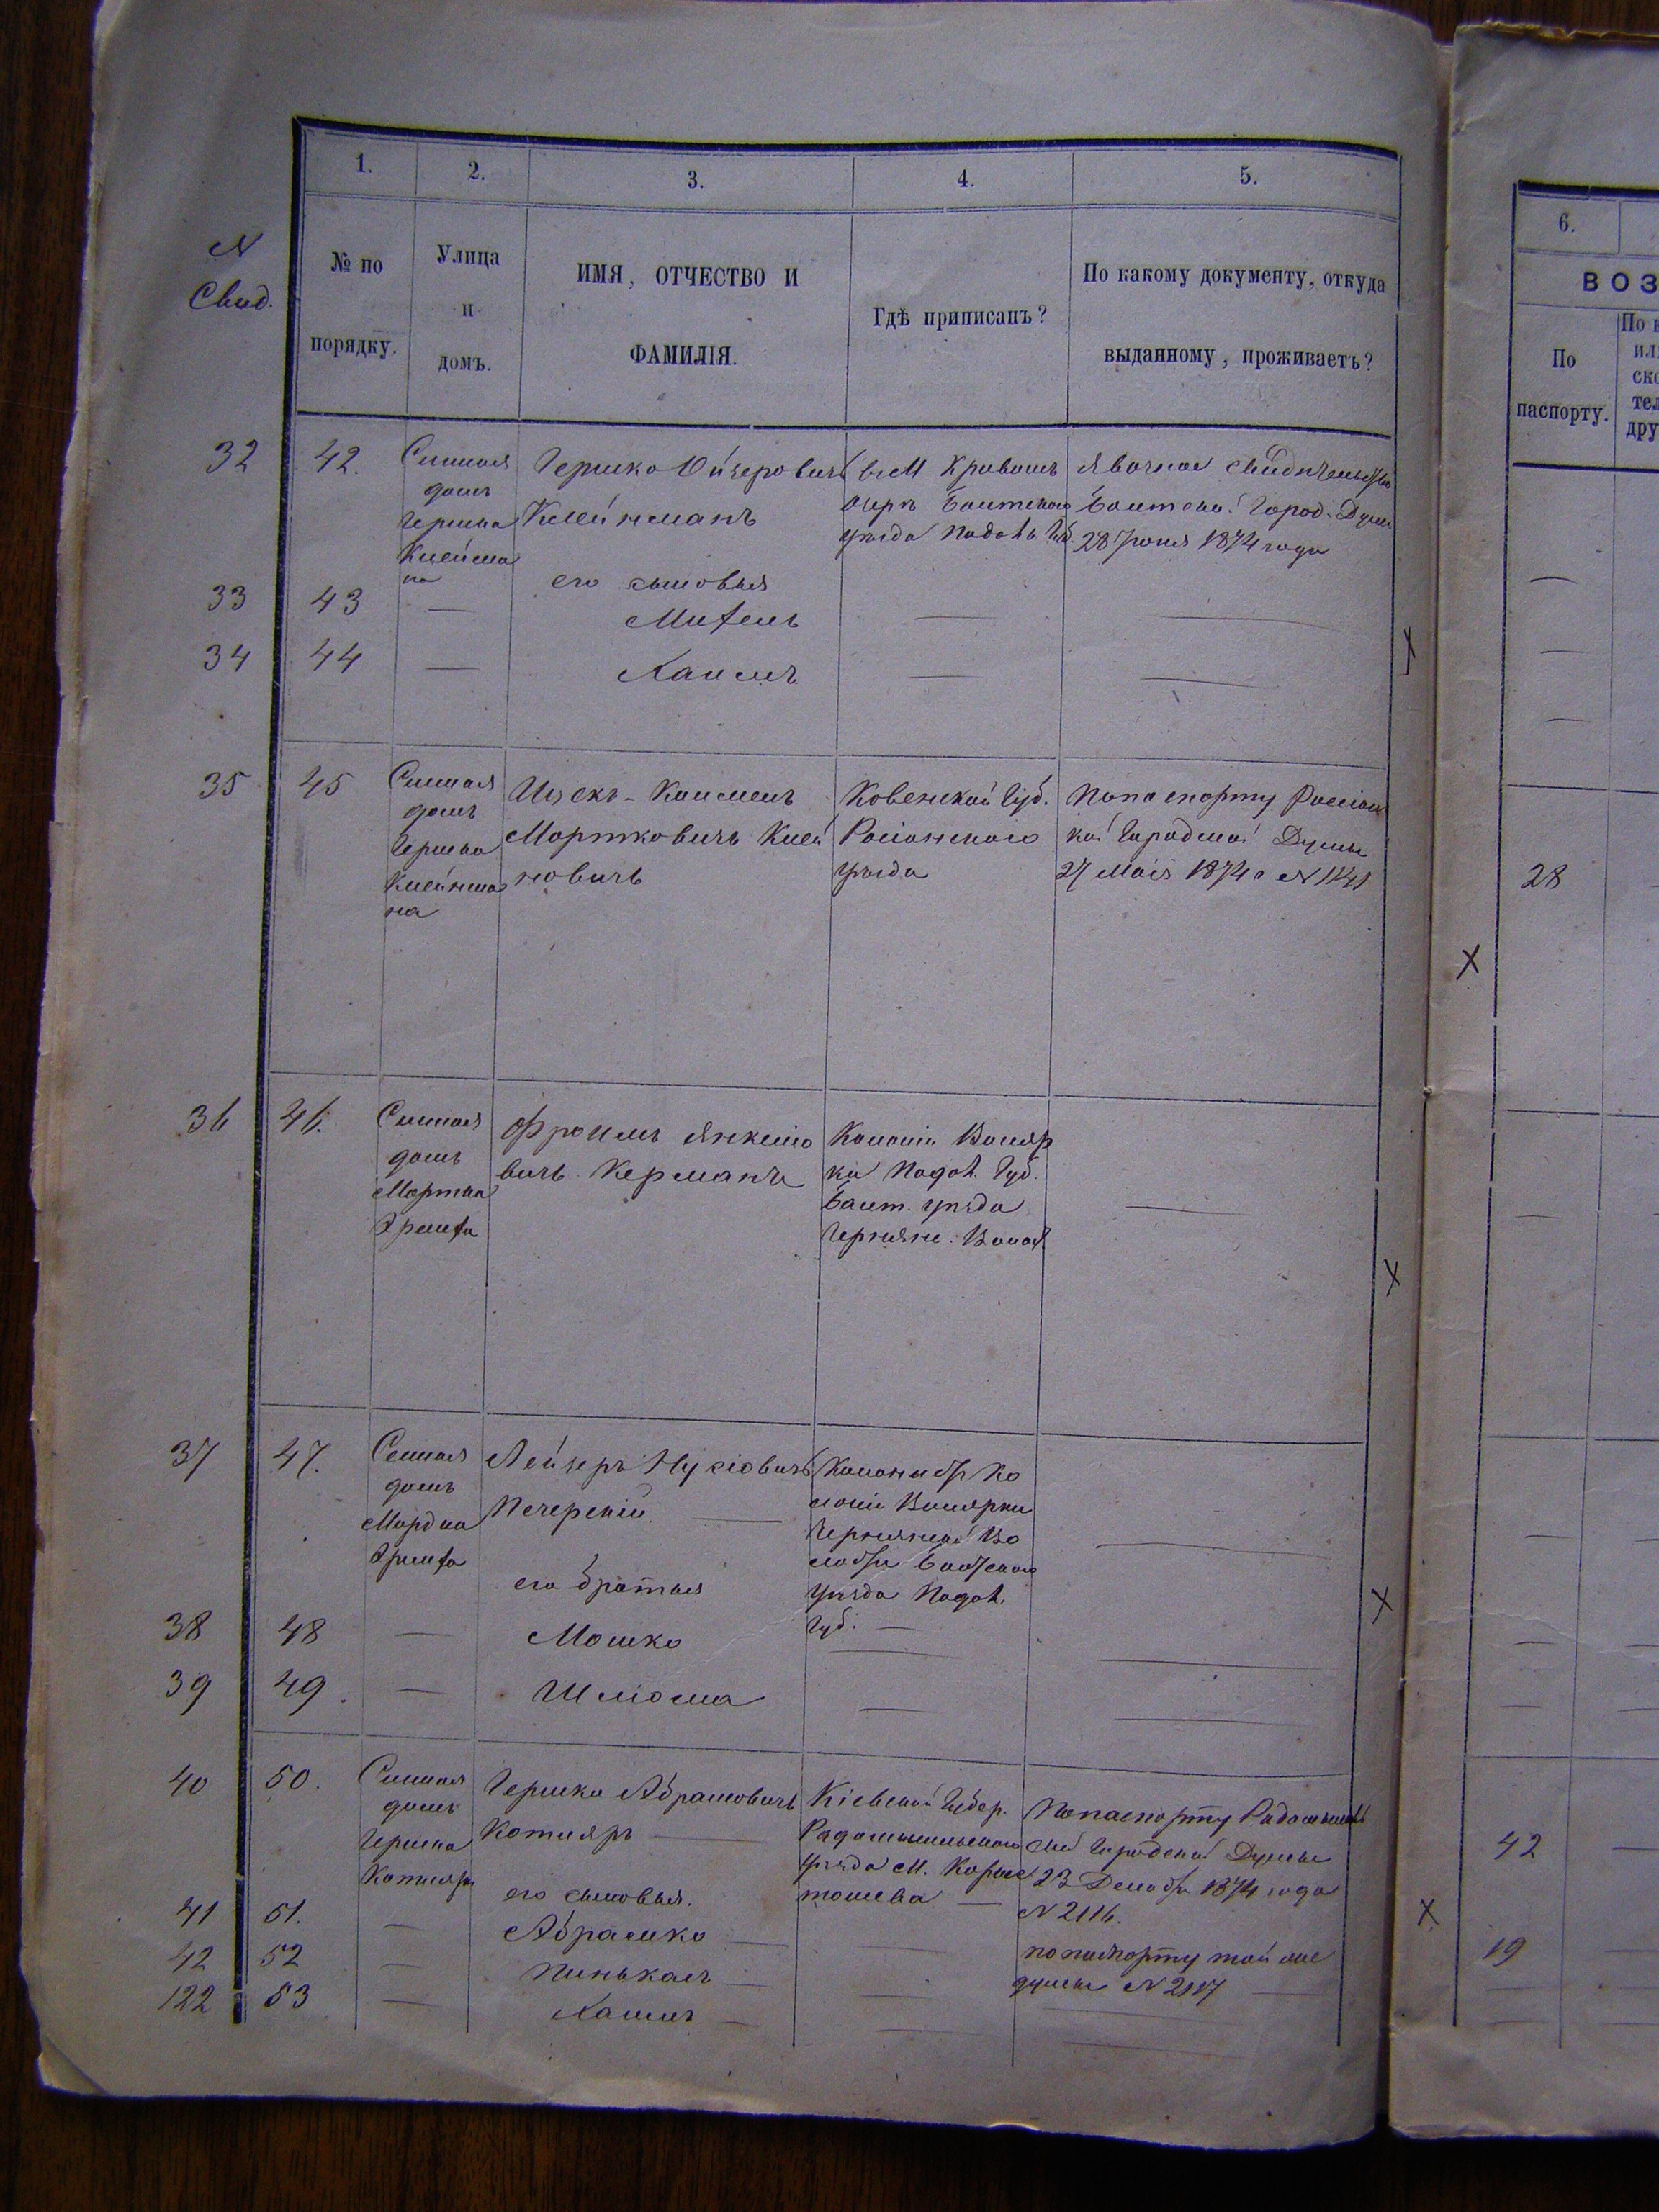 1. 2. 3. 4. 5.
N
Свид.
№ по
порядку.
Улица
и
домъ.
ИМЯ, ОТЧЕСТВО И
ФАМИЛІЯ.
Гдѣ приписанъ?
По какому документу, откуда
выданному, проживаетъ?
32
42.
Сѣнная
домъ
Гершка
Клейнма
на
Гершко Ойзеровичъ
Клейнманъ
въ М Кривомъ
Озерѣ Балтскаго
уѣзда Подоль. Губ.
Явочное свидѣтельство
Балтской Город. Думы
28 Іюня 1874 года
его сыновья
33
43
—
Михель
—
—
34
44
—
Хаимъ
—
—
35
45
Сѣнная
домъ
Гершка
Клейнма
на
Ицекъ-Калменъ
Мортковичъ Клей
новичъ
Ковенской Губ.
Росіенскаго
уѣзда
По паспорту Россіен
кой Городской Думы
27 Маія 1874 г N 1141
36
46.
Сѣнная
домъ
Мортка
Фроимъ Янкелио
вичъ Керманъ
Колоніи Воляр
ки Подол. Губ.
Балт. уѣзда
Чернянс. Волос.
—
37
47.
Сенная
домъ
Мордка
Лейзеръ Нусіовичъ
Печерскій —
Колонистъ Ко
лоніи Волярки
Чернянской Во
лости Балтскаго
уѣзда Подол.
Губ. —
—
его братья
38
48
—
Мошко
—
—
39
49.
—
Шліома
—
—
40
50.
Сѣнная
домъ
Гершка
Котляра
Гершко Абрамовичъ
Котляръ —
Кіевской Губер.
Радомысльскаго
уѣзда М. Корыс
тошева —
По паспорту Радомысль
ской Городской Думы
23 Декабря 1874 года
N 2116.
его сыновья.
41
51.
—
Абрамко —
—
по паспорту той же
думы N 2117 —
42
52
—
Пинькасъ —
—
122
53
—
Хаимъ —
—
6.
ВОЗ
По
паспорту.
По
ил
ско
тел
дру
28
42
19